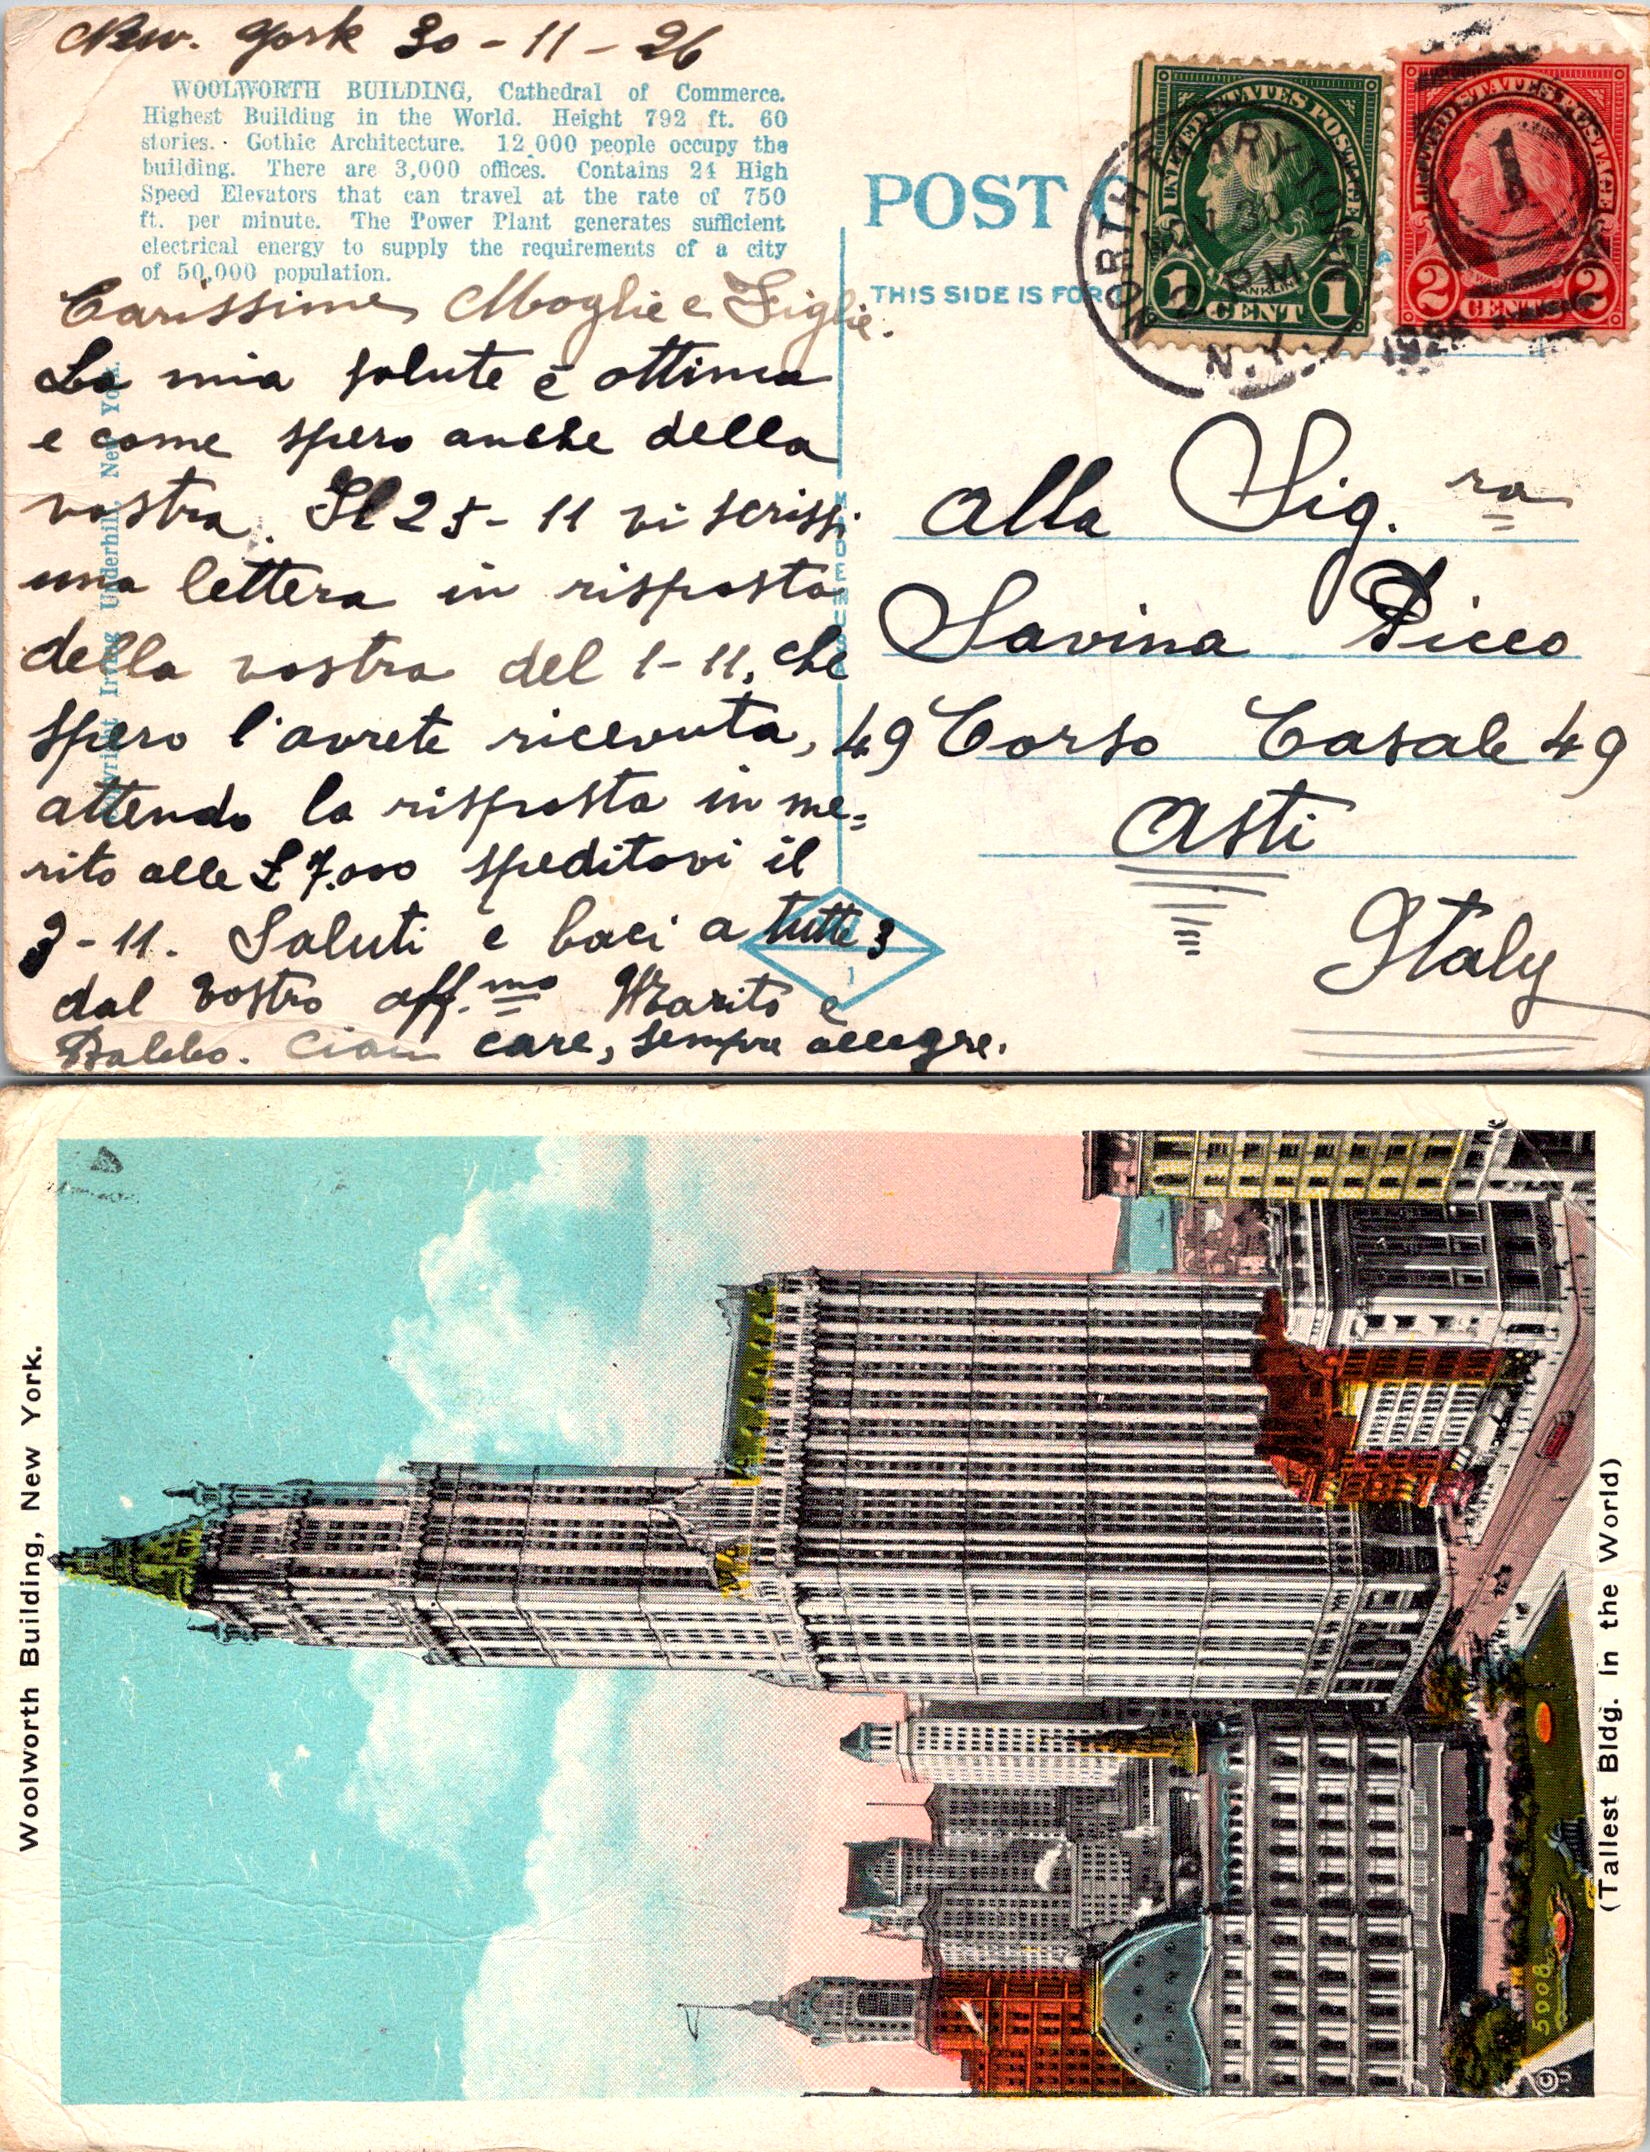 New. York 30-11-26
WOOLWORTH BUILDING, Cathedral of Commerce.
Highest Building in the World. Height 792 ft. 60
stories. Gothic Architecture. 12,000 people occupy the
building. There are 3,000 offices. Contains 24 High
Speed Elevators that can travel at the rate of 750
ft. per minute. The Power Plant generates sufficient
electrical energy to supply the requirements of a city
of 50,000 population.
Carissime Moglie e Figlie.
La mia salute è ottima
e come spero anche della
vostra. Il 25-11 vi scrissi
una lettera in risposta
della vostra del 1-11, che
spero l'avrete ricevuta,
attendo la risposta in me=
rito alle £ 7.000 speditovi il
3-11. Saluti e baci a tutte 3
dal vostro aff.mo Marito e
Babbo. Ciau care, sempre allegre.
Irving Underhill, New York.
POST C
THIS SIDE IS FOR
UNITED STATES POSTAGE
1 CENT 1
FRANKLIN
UNITED STATES POSTAGE
2 CENTS 2
NORTH TARRYTOWN
NOV 30
PM
N.Y.
1926
1
Alla Sig.ra
Savina Picco
49 Corso Casale 49
Asti
Italy
Woolworth Building, New York.
(Tallest Bldg. in the World)
5008
©